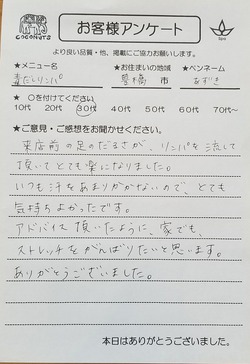 COCONUTS
お客様アンケート
Spa
より良い品質・他、掲載にご協力お願いします。
★メニュー名 ★お住まいの地域 ★ペンネーム
毒だしリンパ 豊橋 市 あずき
★ ○を付けてください
10代 20代 30代 40代 50代 60代 70代～
★ご意見・ご感想をお聞かせください。
来店前の足のだるさが、リンパを流して
頂いてとても楽になりました。
いつも汗をあまりかかないので、とても
気持ちよかったです。
アドバイス頂いたように、家でも、
ストレッチをがんばりたいと思います。
ありがとうございました。
本日はありがとうございました。